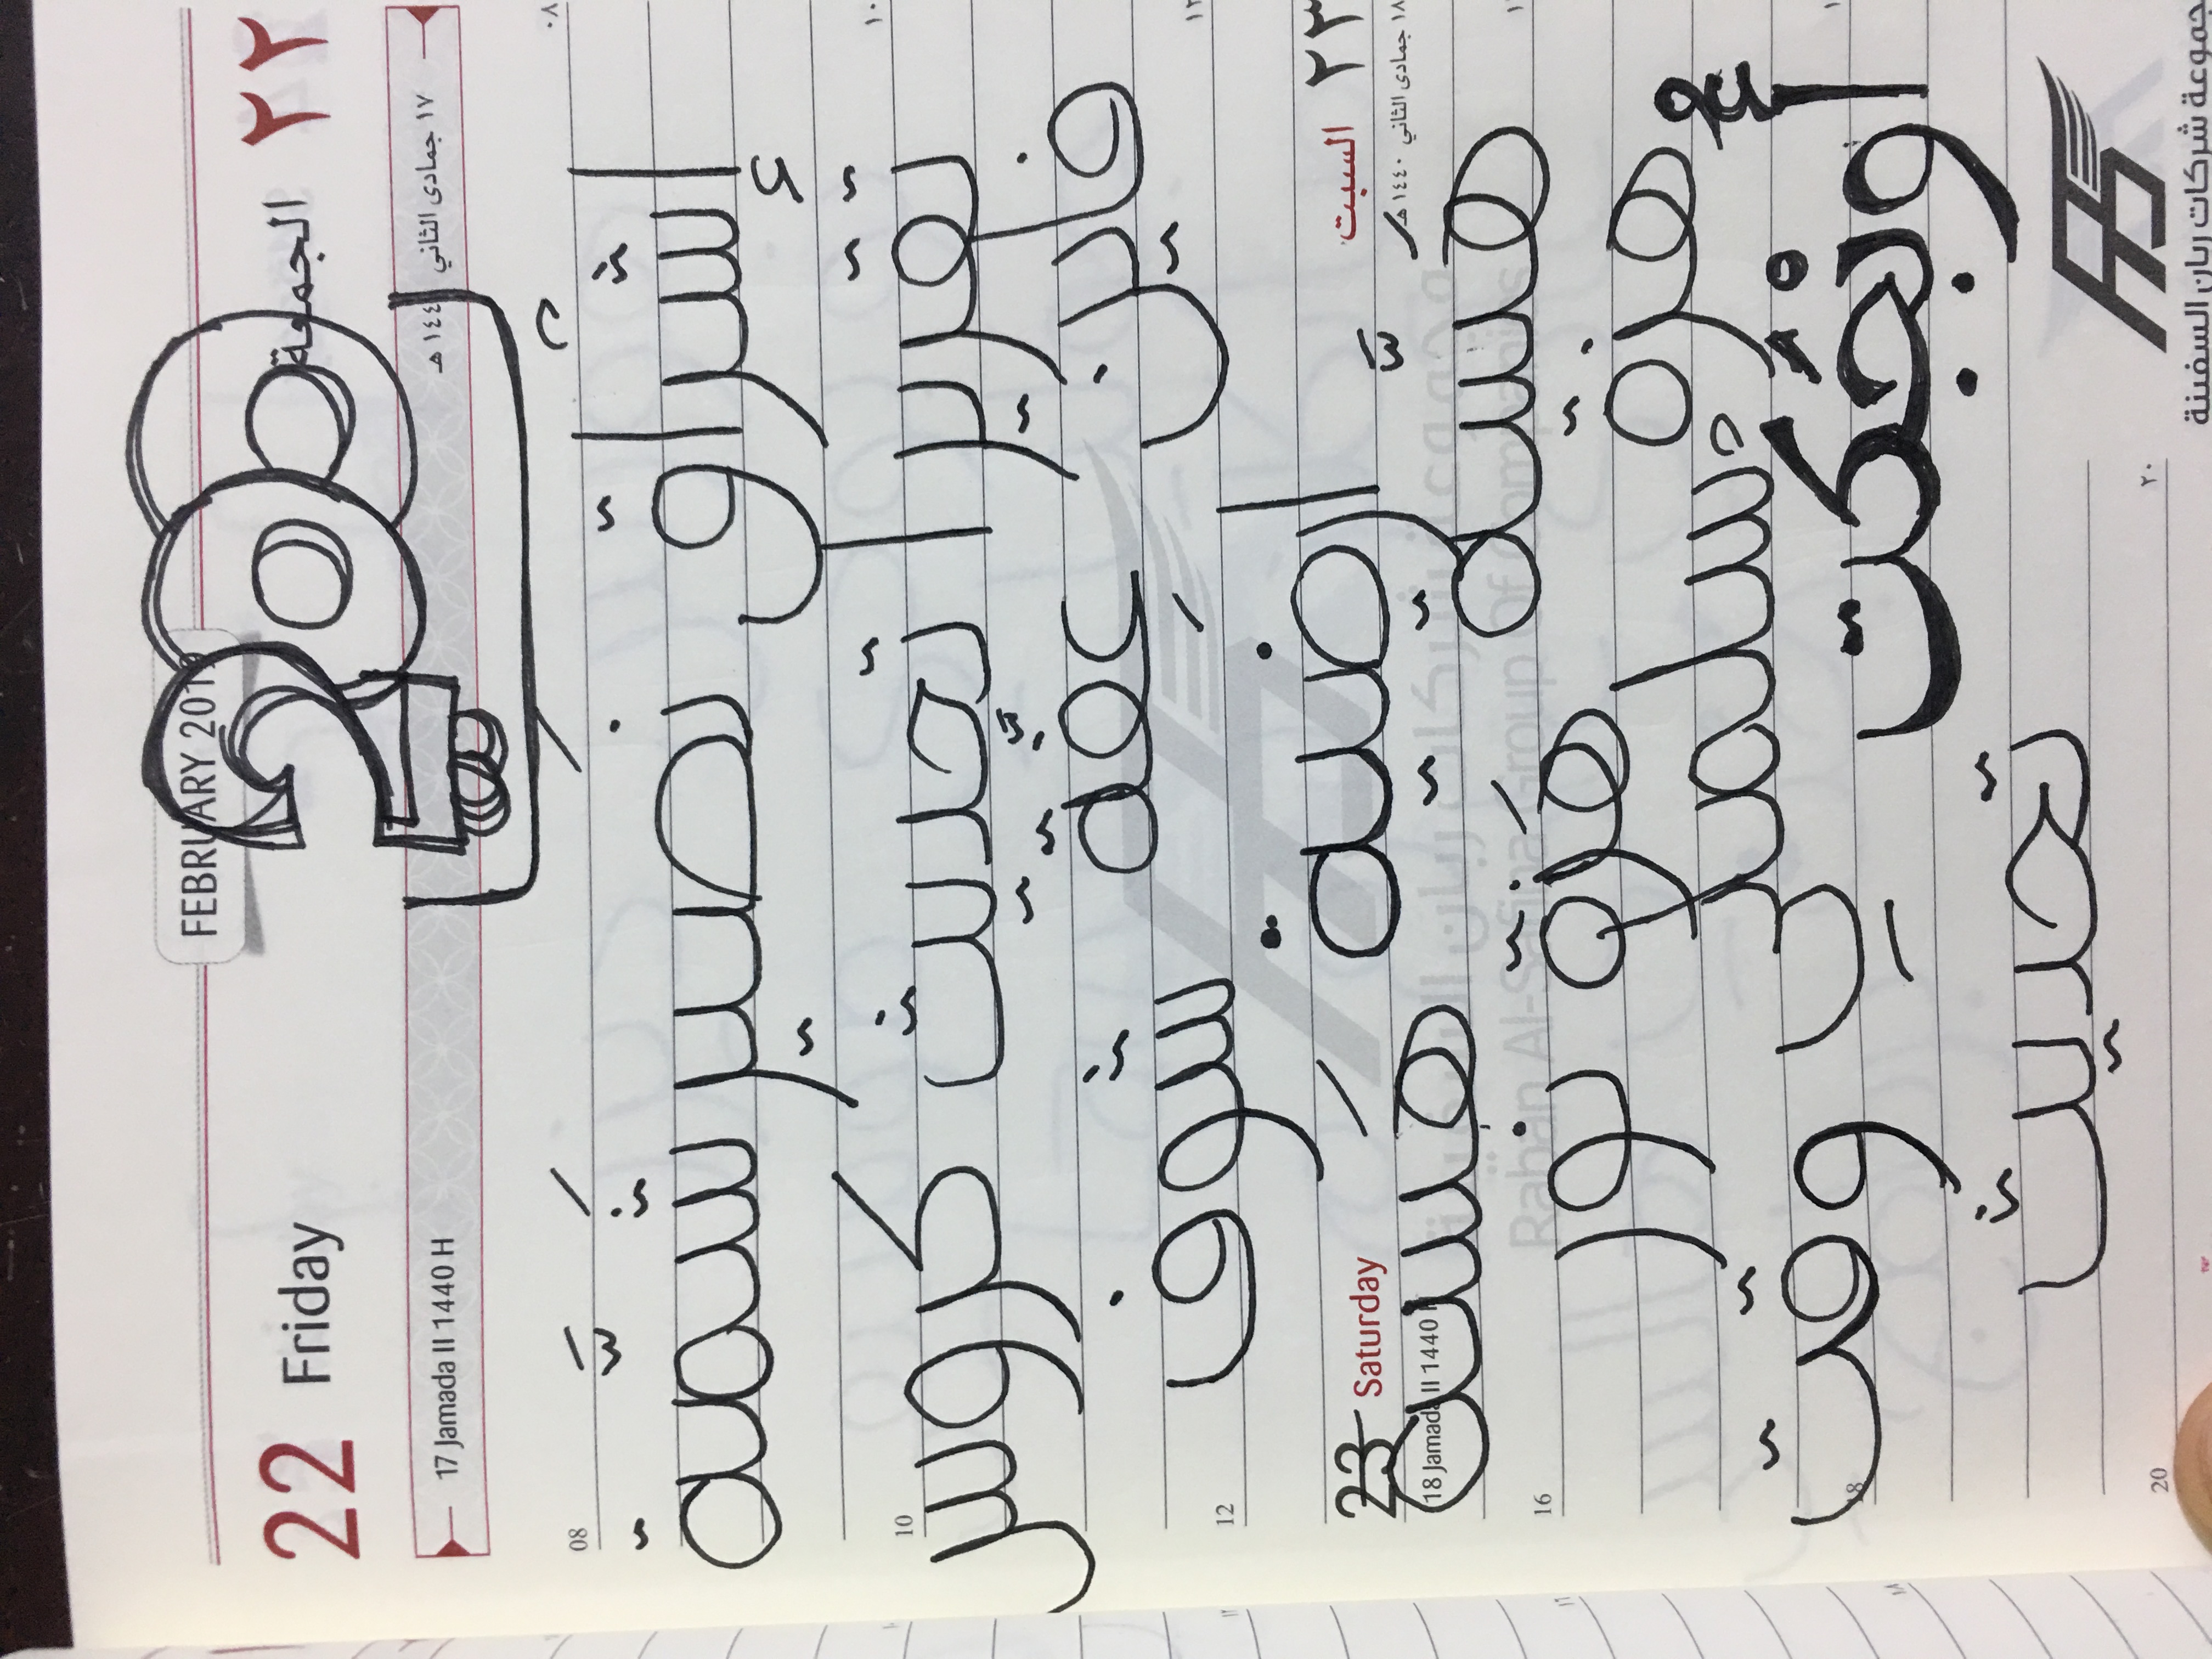 FEBRUARY 2019
200
22 Friday الجمعة ٢٢
17 Jamada II 1440 H ١٧ جمادى الثاني ١٤٤ هـ
08 ٠٨
إشراق نَصير شَمَّة
10 ١٠
تقريرا تحديث كروس
فاين عِفَّة شوف
12 ١٢
ارضية
23 Saturday السبت ٢٣
18 Jamada II 1440 H ١٨ جمادى الثاني ١٤٤٠ هـ
هَبسة
Raban Al-Safina Group Of Companies
16
هزة هَزة نور
سلمى
أوبْجُكت وقت
18
تحديث
20 ٢٠
جموعة شركات ربان السفينة